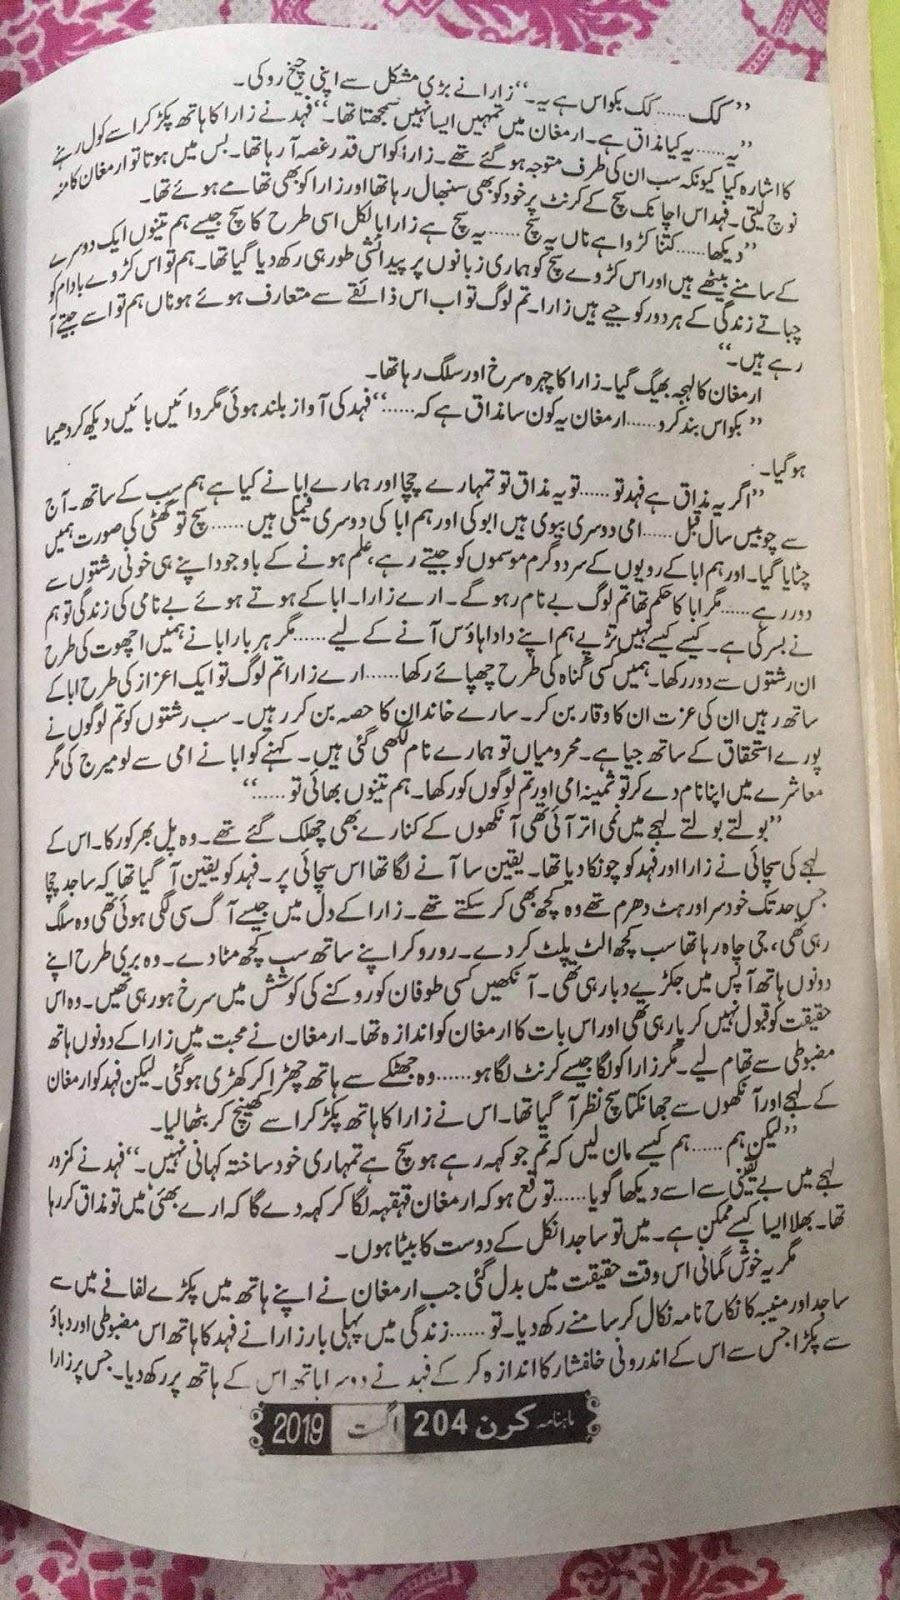 ”کک...... کک بکواس ہے یہ۔“ زارا نے بڑی مشکل سے اپنی چیخ روکی۔
”یہ...... یہ کیا مذاق ہے۔ ارمغان میں تمہیں ایسا نہیں سمجھتا تھا۔“ فہد نے زارا کا ہاتھ پکڑ کر اسے کول رہنے
کا اشارہ کیا کیونکہ سب ان کی طرف متوجہ ہو گئے تھے۔ زارا کو اس قدر غصہ آ رہا تھا۔ بس میں ہوتا تو ارمغان کا منہ
نوچ لیتی۔ فہد اس اچانک سچ کے کرنٹ پر خود کو بھی سنبھال رہا تھا اور زارا کو بھی تھامے ہوئے تھا۔
”دیکھا...... کتنا کڑوا ہے ناں یہ سچ...... یہ سچ ہے زارا بالکل اسی طرح کا سچ جیسے ہم تینوں ایک دوسرے
کے سامنے بیٹھے ہیں اور اس کڑوے سچ کو ہماری زبانوں پر پیدائشی طور ہی رکھ دیا گیا تھا۔ ہم تو اس کڑوے بادام کو
چباتے زندگی کے ہر دور کو جیے ہیں زارا۔ تم لوگ تو اب اس ذائقے سے متعارف ہوئے ہو ناں ہم تو اسے جیتے آ
رہے ہیں۔“
ارمغان کا لہجہ بھیگ گیا۔ زارا کا چہرہ سرخ اور سلگ رہا تھا۔
”بکواس بند کرو...... ارمغان یہ کون سا مذاق ہے کہ......“ فہد کی آواز بلند ہوئی مگر دائیں بائیں دیکھ کر دھیما
ہو گیا۔
”اگر یہ مذاق ہے فہد تو...... تو یہ مذاق تو تمہارے چچا اور ہمارے ابا نے کیا ہے ہم سب کے ساتھ۔ آج
سے چوبیس سال قبل...... امی دوسری بیوی ہیں ابو کی اور ہم ابا کی دوسری فیملی ہیں...... سچ تو گھٹی کی صورت ہمیں
چٹایا گیا۔ اور ہم ابا کے رویوں کے سرد و گرم موسموں کو جیتے رہے، علم ہونے کے باوجود اپنے ہی خونی رشتوں سے
دور رہے...... مگر ابا کا حکم تھا تم لوگ بے نام رہو گے۔ ارے زارا۔ ابا کے ہوتے ہوئے بے نامی کی زندگی تو ہم
نے بسر کی ہے۔ کیسے کیسے نہیں تڑپے ہم اپنے دادا ہاؤس آنے کے لیے...... مگر ہر بار ابا نے ہمیں اچھوت کی طرح
ان رشتوں سے دور رکھا۔ ہمیں کسی گناہ کی طرح چھپائے رکھا...... ارے زارا تم لوگ تو ایک اعزاز کی طرح ابا کے
ساتھ رہیں ان کی عزت ان کا وقار بن کر۔ سارے خاندان کا حصہ بن کر رہیں۔ سب رشتوں کو تم لوگوں نے
پورے استحقاق کے ساتھ جیا ہے۔ محرومیاں تو ہمارے نام لکھی گئی ہیں۔ کہنے کو ابا نے امی سے لو میرج کی مگر
معاشرے میں اپنا نام دے کر تو ثمینہ امی اور تم لوگوں کو رکھا۔ ہم تینوں بھائی تو......“
”بولتے بولتے لہجے میں نمی اتر آئی تھی آنکھوں کے کنارے بھی چھلک گئے تھے۔ وہ پل بھر کو رکا۔ اس کے
لہجے کی سچائی نے زارا اور فہد کو چونکا دیا تھا۔ یقین سا آنے لگا تھا اس سچائی پر۔ فہد کو یقین آ گیا تھا کہ ساجد چچا
جس حد تک خود سر اور ہٹ دھرم تھے وہ کچھ بھی کر سکتے تھے۔ زارا کے دل میں جیسے آگ سی لگی ہوئی تھی وہ سلگ
رہی تھی، جی چاہ رہا تھا سب کچھ الٹ پلٹ کر دے۔ رو رو کر اپنے ساتھ سب کچھ مٹا دے۔ وہ بری طرح اپنے
دونوں ہاتھ آپس میں جکڑے دبا رہی تھی۔ آنکھیں کسی طوفان کو روکنے کی کوشش میں سرخ ہو رہی تھیں۔ وہ اس
حقیقت کو قبول نہیں کر پا رہی تھی اور اس بات کا ارمغان کو اندازہ تھا۔ ارمغان نے محبت میں زارا کے دونوں ہاتھ
مضبوطی سے تھام لیے۔ مگر زارا کو لگا جیسے کرنٹ لگا ہو...... وہ جھٹکے سے ہاتھ چھڑا کر کھڑی ہو گئی۔ لیکن فہد کو ارمغان
کے لہجے اور آنکھوں سے جھانکتا سچ نظر آ گیا تھا۔ اس نے زارا کا ہاتھ پکڑ کر اسے کھینچ کر بٹھا لیا۔
”لیکن ہم...... ہم کیسے مان لیں کہ تم جو کہہ رہے ہو سچ ہے تمہاری خود ساختہ کہانی نہیں۔“ فہد نے کمزور
لہجے میں بے یقینی سے اسے دیکھا گویا...... توقع ہو کہ ارمغان قہقہہ لگا کر کہہ دے گا کہ ارے بھئی میں تو مذاق کر رہا
تھا۔ بھلا ایسا کیسے ممکن ہے۔ میں تو ساجد انکل کے دوست کا بیٹا ہوں۔
مگر یہ خوش گمانی اس وقت حقیقت میں بدل گئی جب ارمغان نے اپنے ہاتھ میں پکڑے لفافے میں سے
ساجد اور منیبہ کا نکاح نامہ نکال کر سامنے رکھ دیا۔ تو...... زندگی میں پہلی بار زارا نے فہد کا ہاتھ اس مضبوطی اور دباؤ
سے پکڑا جس سے اس کے اندرونی خلفشار کا اندازہ کر کے فہد نے دوسرا ہاتھ اس کے ہاتھ پر رکھ دیا۔ جس پر زارا
ماہنامہ کرن 204 اگست 2019